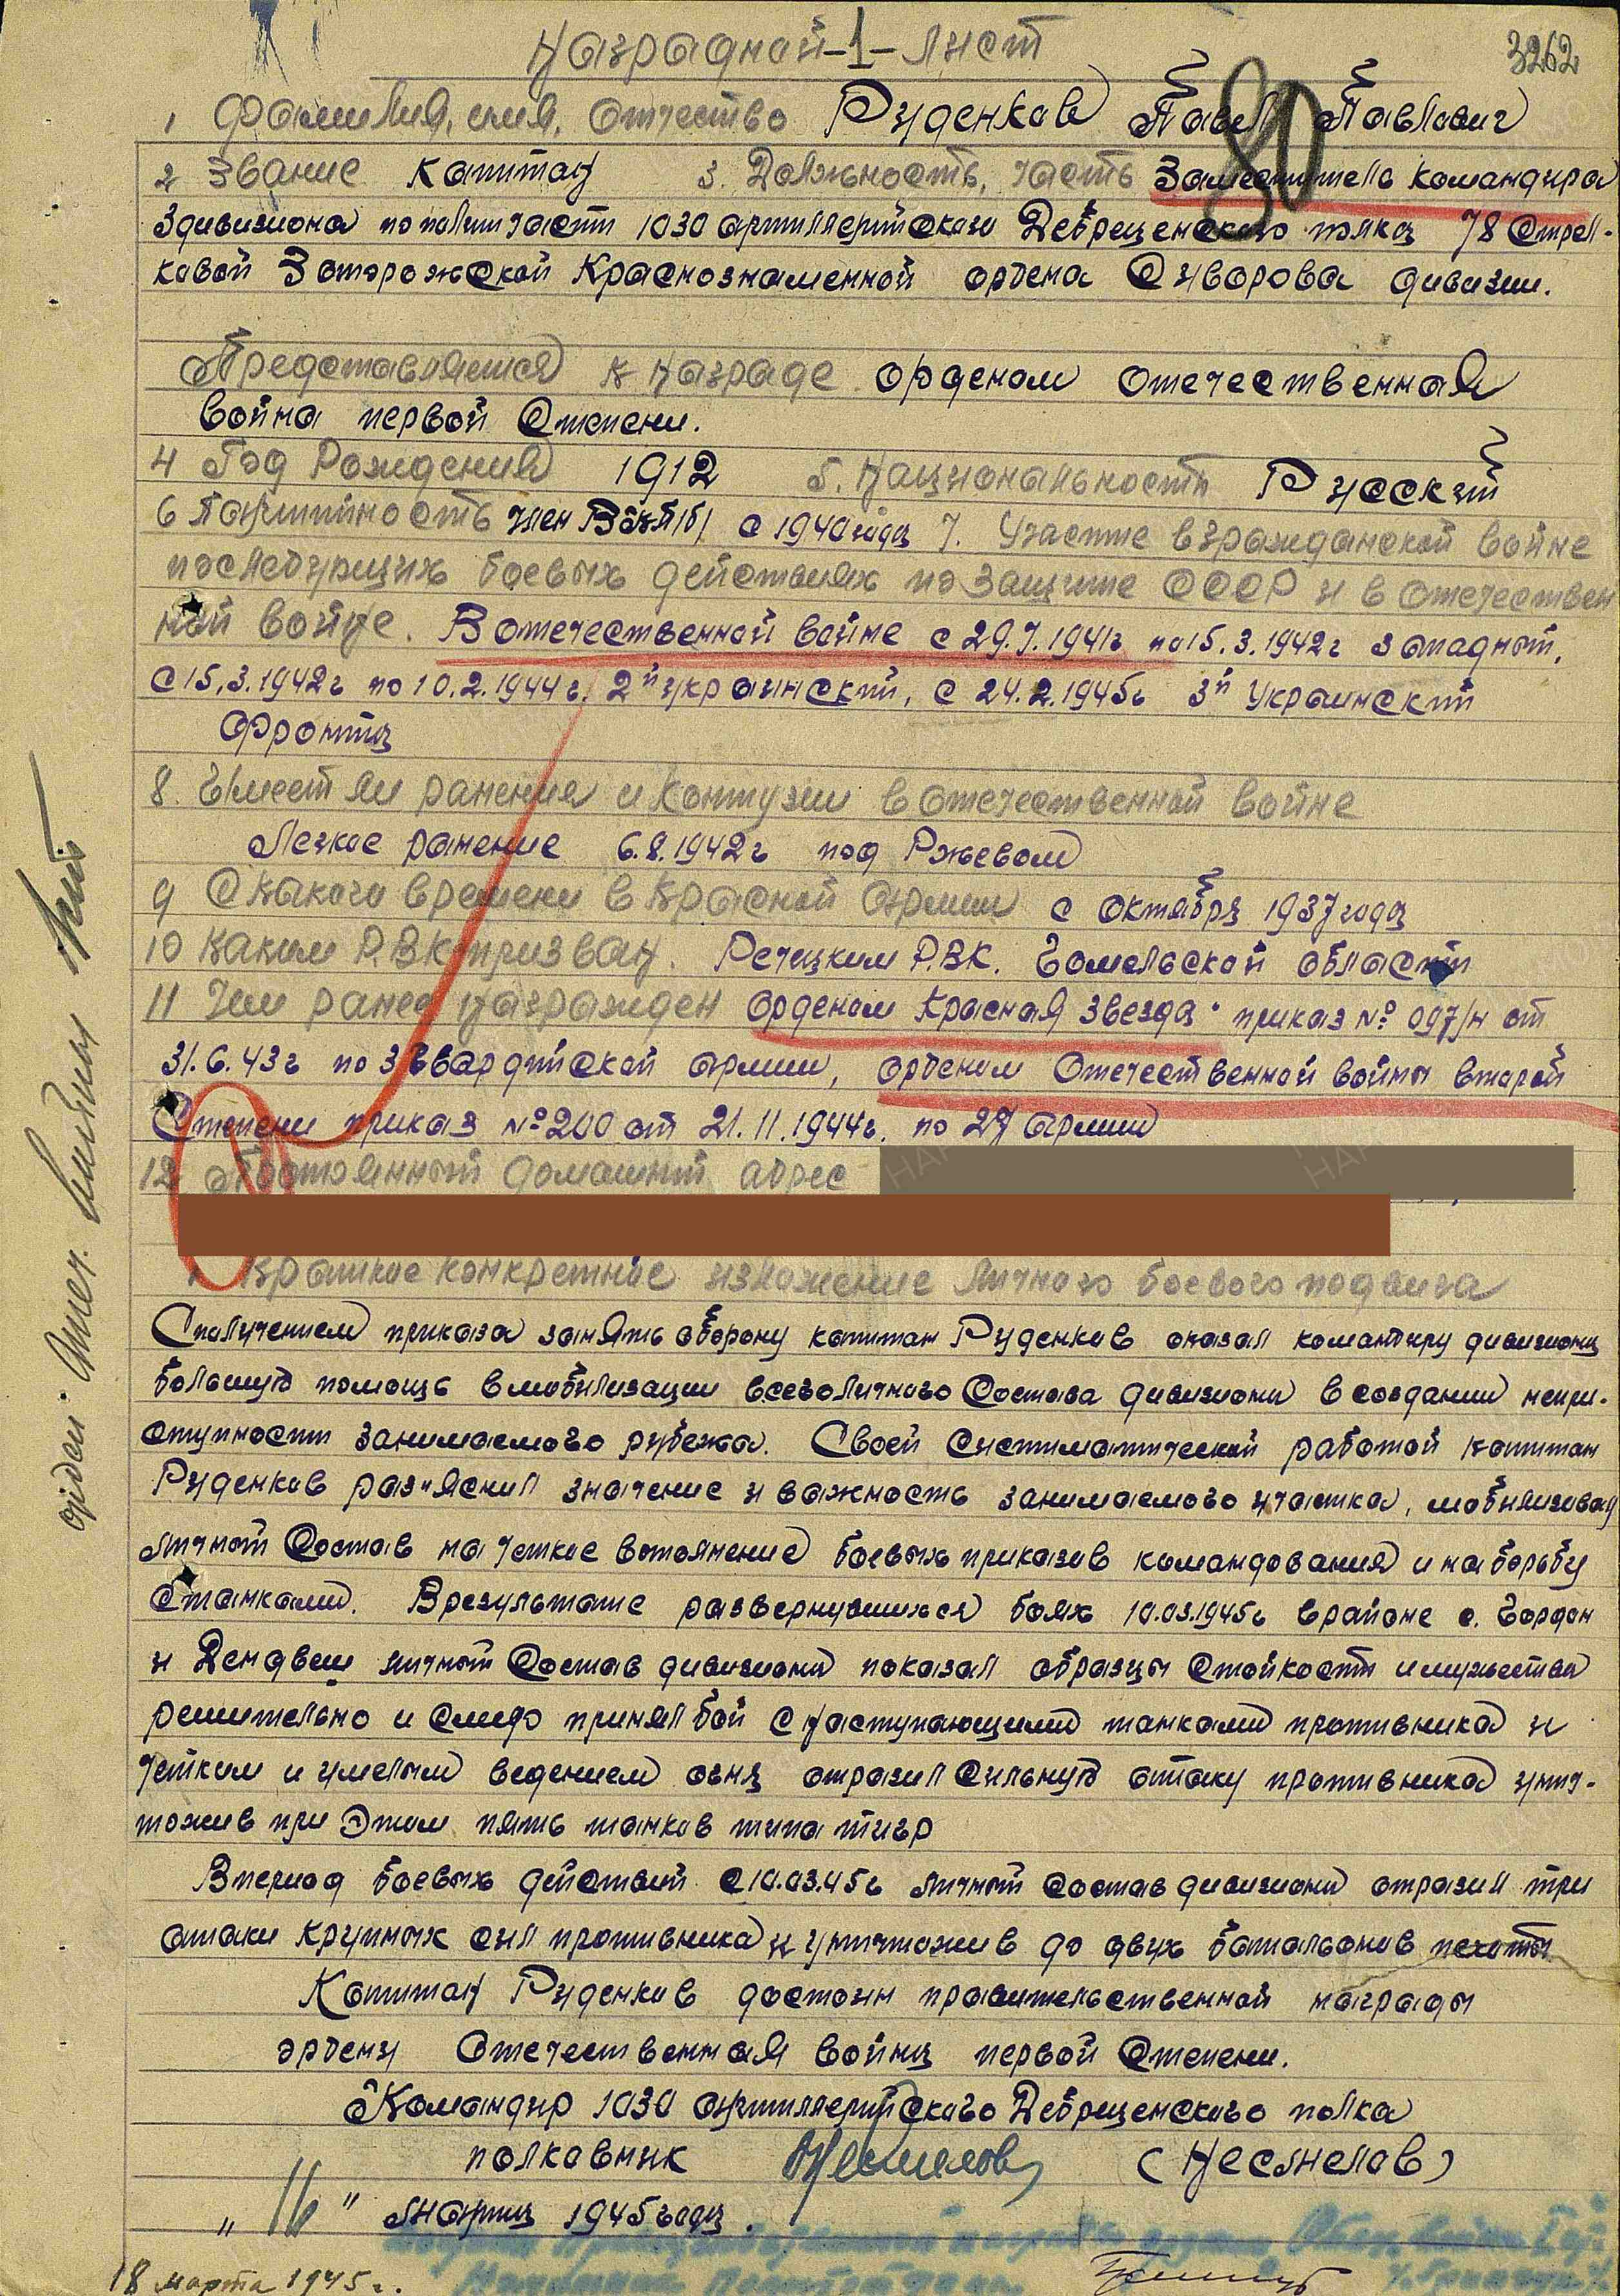 Наградной -1- лист
3262
1 Фамилия, имя, отчество Руденков Павел Павлович
80
2 Звание капитан 3. Должность, часть Заместитель командира
3 дивизиона по полит части 1030 артиллерийского Дебреценского полка 78 Стрел-
ковой Запорожской Краснознаменной ордена Суворова дивизии.
Представляется к награде орденом отечественная
война первой Степени.
4 Год Рождения 1912 5. Национальность Русский
6 Партийность член ВКП(б) с 1940 года 7. Участие в гражданской войне
последующих боевых действиях по защите СССР и в отечествен
ной войне. В отечественной войне с 29.7.1941г по 15.3.1942г западный,
с 15.3.1942г по 10.2.1944г. 2й украинский, с 24.2.1945г 3й Украинский
фронты
8. Имеет ли ранения и контузии в отечественной войне
Легкое ранение 6.8.1942г под Ржевом
9 С какого времени в Красной армии с октября 1937 года
10 Каким Р.В.К призван. Речицким Р.В.К. Гомельской области
11 Чем ранее награжден орденом Красная звезда приказ № 097/н от
31.6.43г по 3 гвардейской армии, орденом Отечественной войны второй
Степени приказ № 200 от 21.11.1944г. по 27 армии
12 Постоянный домашний адрес
Краткое конкретное изложение личного боевого подвига
С получением приказа занять оборону капитан Руденков оказал командиру дивизиона
большую помощь в мобилизации всего личного Состава дивизиона в создании непри-
ступности занимаемого рубежа. Своей систиматической работой капитан
Руденков раз"яснил значение и важность занимаемого участка, мобилизовал
личный Состав на четкое выполнение боевых приказов командования и на борьбу
с танками. В результате развернувшихся боях 10.03.1945г в районе с. Гордон
и Дендвеш личный Состав дивизиона показал образцы стойкости и мужества
решительно и смело принял бой с наступающими танками противника и
четким и умелым ведением огня отразил сильную атаку противника унич-
тожив при этом пять танков типа тигр
В период боевых действий с 10.03.45г личный состав дивизиона отразил три
атаки крупных сил противника и уничтожив до двух батальонов пехоты
Капитан Руденков достоин правительственной награды
ордену Отечественная война первой Степени.
Командир 1030 артиллерийского Дебреценского полка
полковник (Несмелов)
" 16 " марта 1945 года.
18 марта 1945г.